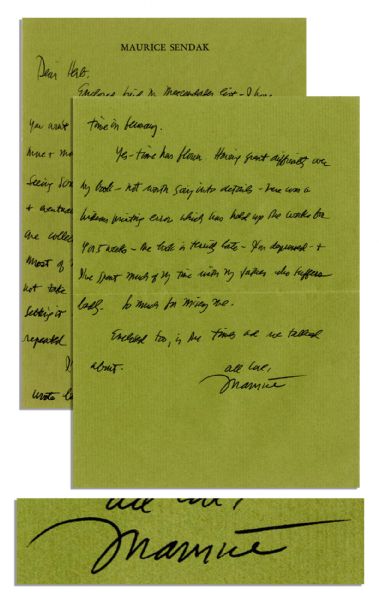 MAURICE SENDAK
Dear Herb.
Enclosed
You won't
Seeing
are collec
most of
not take
Selling it
repeated
wrote
time in January.
Yes – time has flown. Having great difficulty over
my book – not worth going into details – there was a
hideous printing error which has held up the works for
4 or 5 weeks – the book is terribly late – I'm depressed – +
I've spent much of my time with my father who suffers
badly. So much for missing me.
Enclosed too, is the Times ad we talked
about.
all love,
Maurice
all love,
Maurice